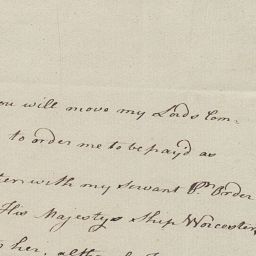 ou will move my Lords Com-
to order me to be pay'd as
ten with my servant Pr Order
His Majestys Ship Worcester
her, altho